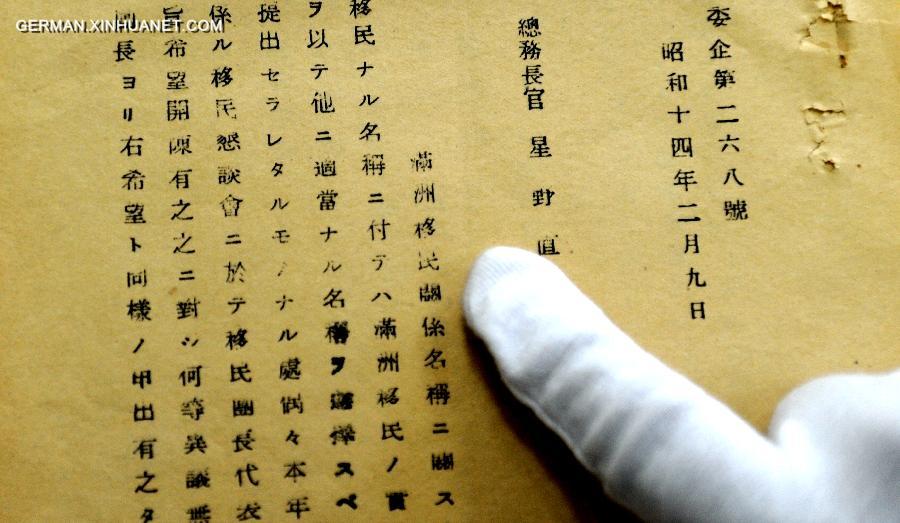 GERMAN.XINHUANET.COM
委企第二六八號
昭和十四年二月九日
總務長官 星野直
滿洲移民關係名稱ニ關ス
移民ナル名稱ニ付テハ滿洲移民ノ實
ヲ以テ他ニ適當ナル名稱ヲ選擇スベ
提出セラレタルモノナル處偶々本年
係ル移民懇談會ニ於テ移民團長代表
旨希望開陳有之之ニ對シ何等異議無
長ヨリ右希望ト同樣ノ申出有之タ